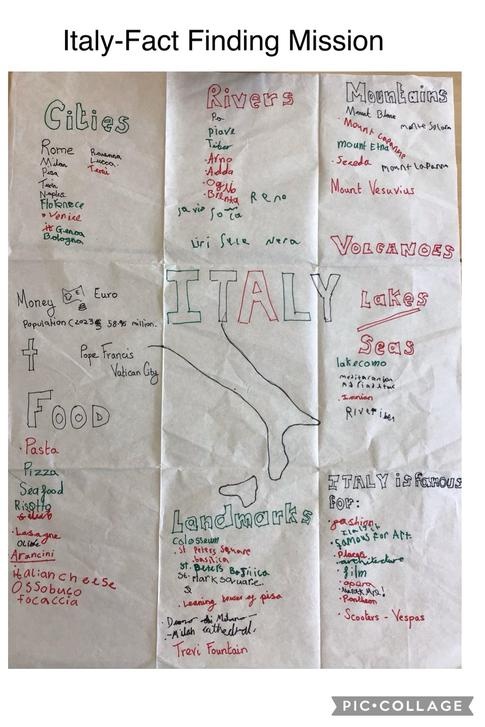 Italy-Fact Finding Mission
Cities
Rome
Milan
Pisa
Turin
Naples
Florence
Venice
Genoa
Bologna
Ravenna
Lucca
Rivers
Po
Piave
Tiber
Arno
Adda
Oglio
Brenta
Reno
Savio Soča
Liri Sele Nera
Mountains
Mount Blanc
Mount Etna
Seceda
Mount Vesuvius
VOLCANOES
ITALY
Money Euro
Population (2023) 58.95 million.
Pope Francis
Vatican City
Lakes
Seas
lake como
FOOD
Pasta
Pizza
Seafood
Risotto
Lasagne
Arancini
italian cheese
Ossobuco
focaccia
Landmarks
Colosseum
St Peters Square
basilica
St. Peters Basilica
St. Mark square.
&
Leaning tower of pisa
Milan cathedral.
Trevi Fountain
ITALY is famous
for:
fashion
famous for Art
architecture
film
opera
Pantheon
Scooters - Vespas
PIC•COLLAGE